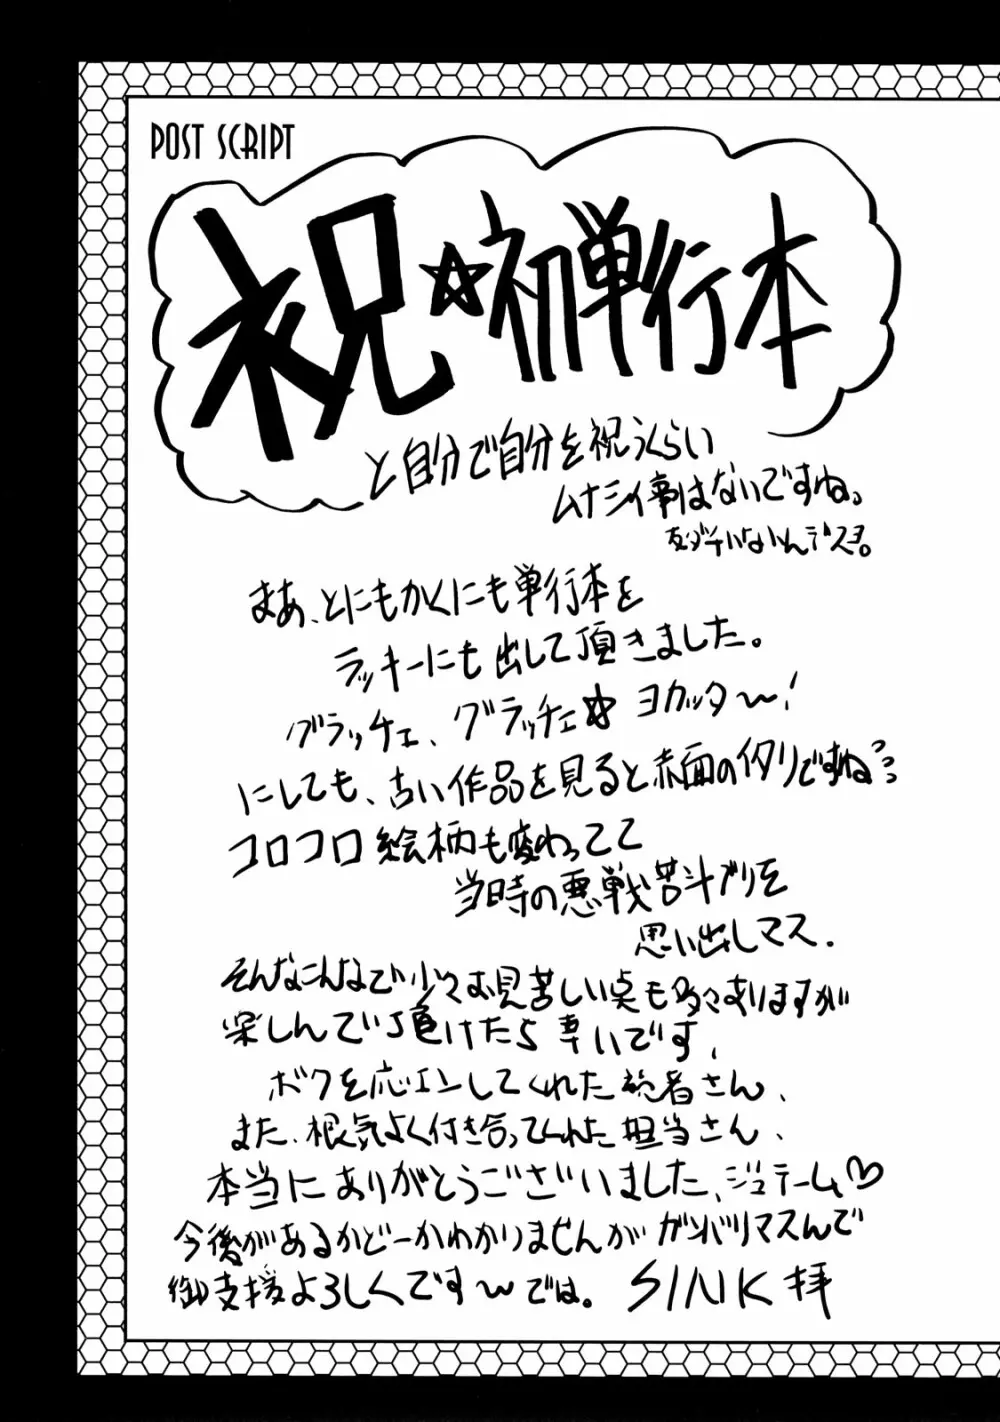 POST SCRIPT
祝☆初単行本
と自分で自分を祝うくらい
ムナシイ事はないですね。
まあ、とにもかくにも単行本を
ラッキーにも出して頂きました。
グラッチェ、グラッチェ☆ ヨカッタ〜!
にしても、古い作品を見ると赤面のイタリですね…
コロコロ絵柄も変わってて
当時の悪戦苦斗ブリを
思い出しマス.
そんなこんなで少々お見苦しい点も多々ありますが
楽しんで頂けたら幸いです.
ボクを応エンしてくれた読者さん、
また、根気よく付き合ってくれた担当さん、
本当にありがとうございました、ジュテーム♡
今後があるかどーかわかりませんが ガンバリマスんで
御支援よろしくです〜では。 SINK拝